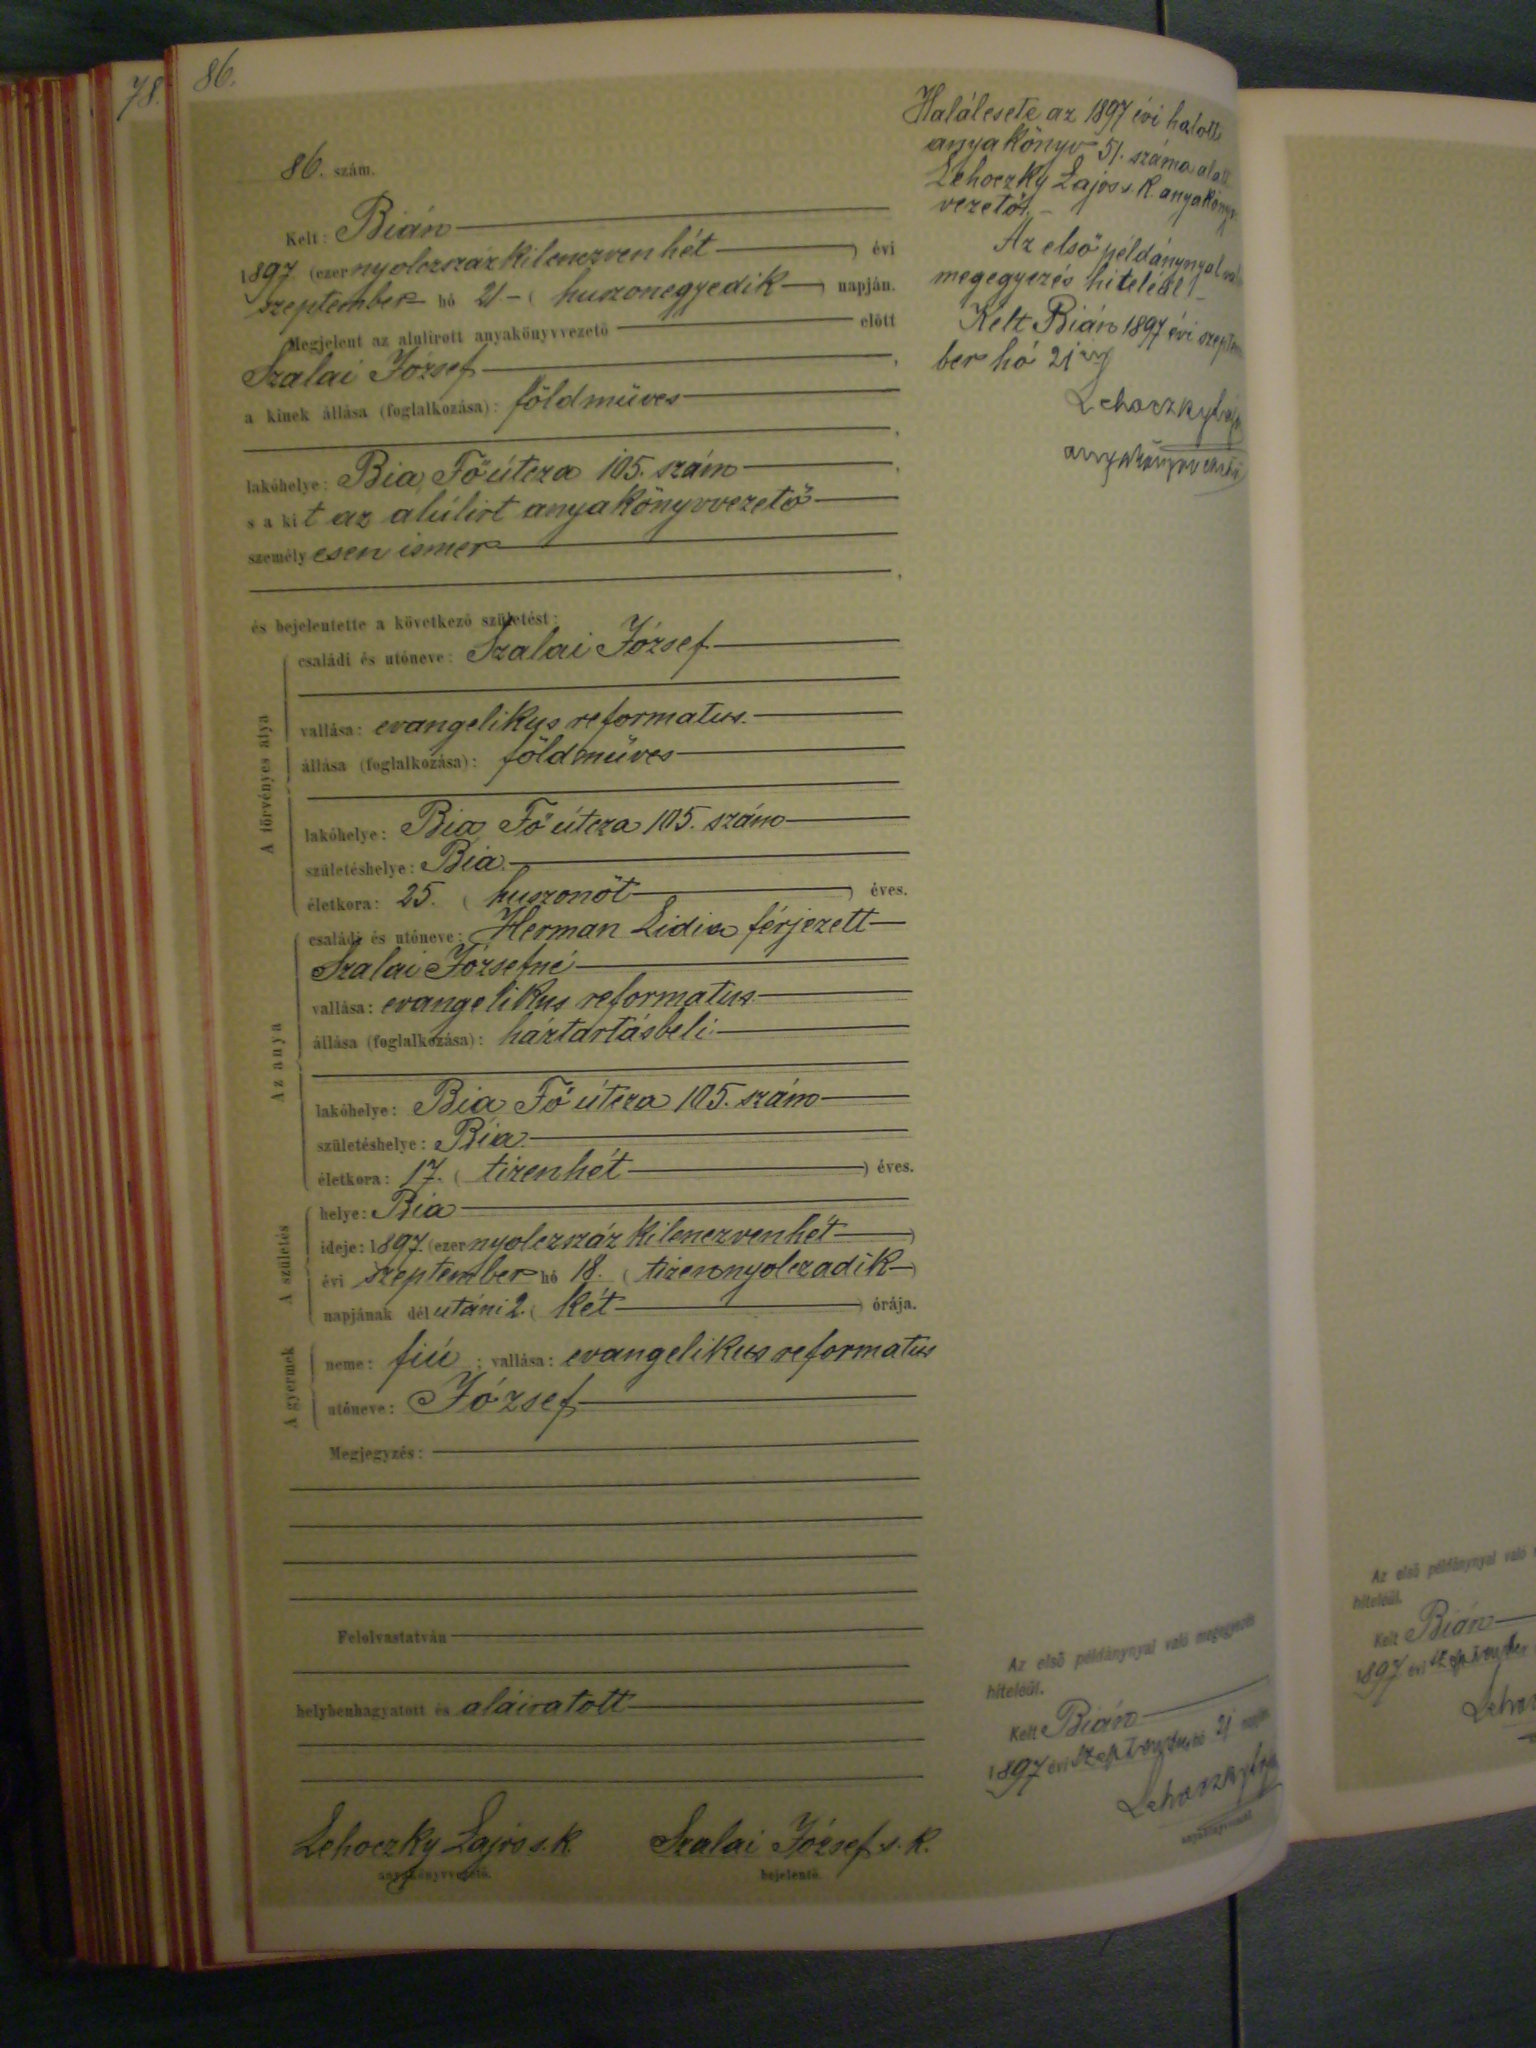 78.
86.
86. szám.
Kelt: Bián
1897 (ezernyolczszázkilenczvenhét) évi
szeptember hó 21 (huszonegyedik) napján.
Megjelent az alulirott anyakönyvvezető előtt
Szalai József,
a kinek állása (foglalkozása): földmüves
,
lakóhelye: Bia, Fő útcza 105. szám,
s a kit az alúlirt anyakönyvvezető
személyesen ismer
,
és bejelentette a következő születést:
A törvényes atya
családi és utóneve: Szalai József
vallása: evangelikus reformatus.
állása (foglalkozása): földmüves
lakóhelye: Bia, Fő útcza 105. szám
születéshelye: Bia.
életkora: 25. (huszonöt) éves.
Az anya
családi és utóneve: Herman Lidia férjezett
Szalai Józsefné
vallása: evangelikus reformatus
állása (foglalkozása): háztartásbeli.
lakóhelye: Bia, Fő útcza 105. szám
születéshelye: Bia.
életkora: 17. (tizenhét) éves.
A születés
helye: Bia
ideje: 1897. (ezernyolczszáz kilenczvenhét)
évi szeptember hó 18. (tizennyolczadik)
napjának délutáni 2. (két) órája.
A gyermek
neme: fiú; vallása: evangelikus reformatus
utóneve: József
Megjegyzés:
Felolvastatván
helybenhagyatott és aláiratott
Lehoczky Lajos s. k.
anyakönyvvezető.
Szalai József s. k.
bejelentő.
Halálesete az 1897 évi halotti
anyakönyv 51. száma alatt
Lehoczky Lajos s. k. anyakönyv
vezető.
Az első példánynyal való
megegyezés hiteléül!
Kelt Bián 1897 évi szeptem
ber hó 21én
Lehoczky Lajos
anyakönyvvezető
Az első példánynyal való megegyezés
hiteléül.
Kelt Bián
1897 évi szeptember hó 21 napján
Lehoczky Lajos
anyakönyvvezető
Az első példánynyal való
hiteléül.
Kelt Bián
1897 évi szeptember